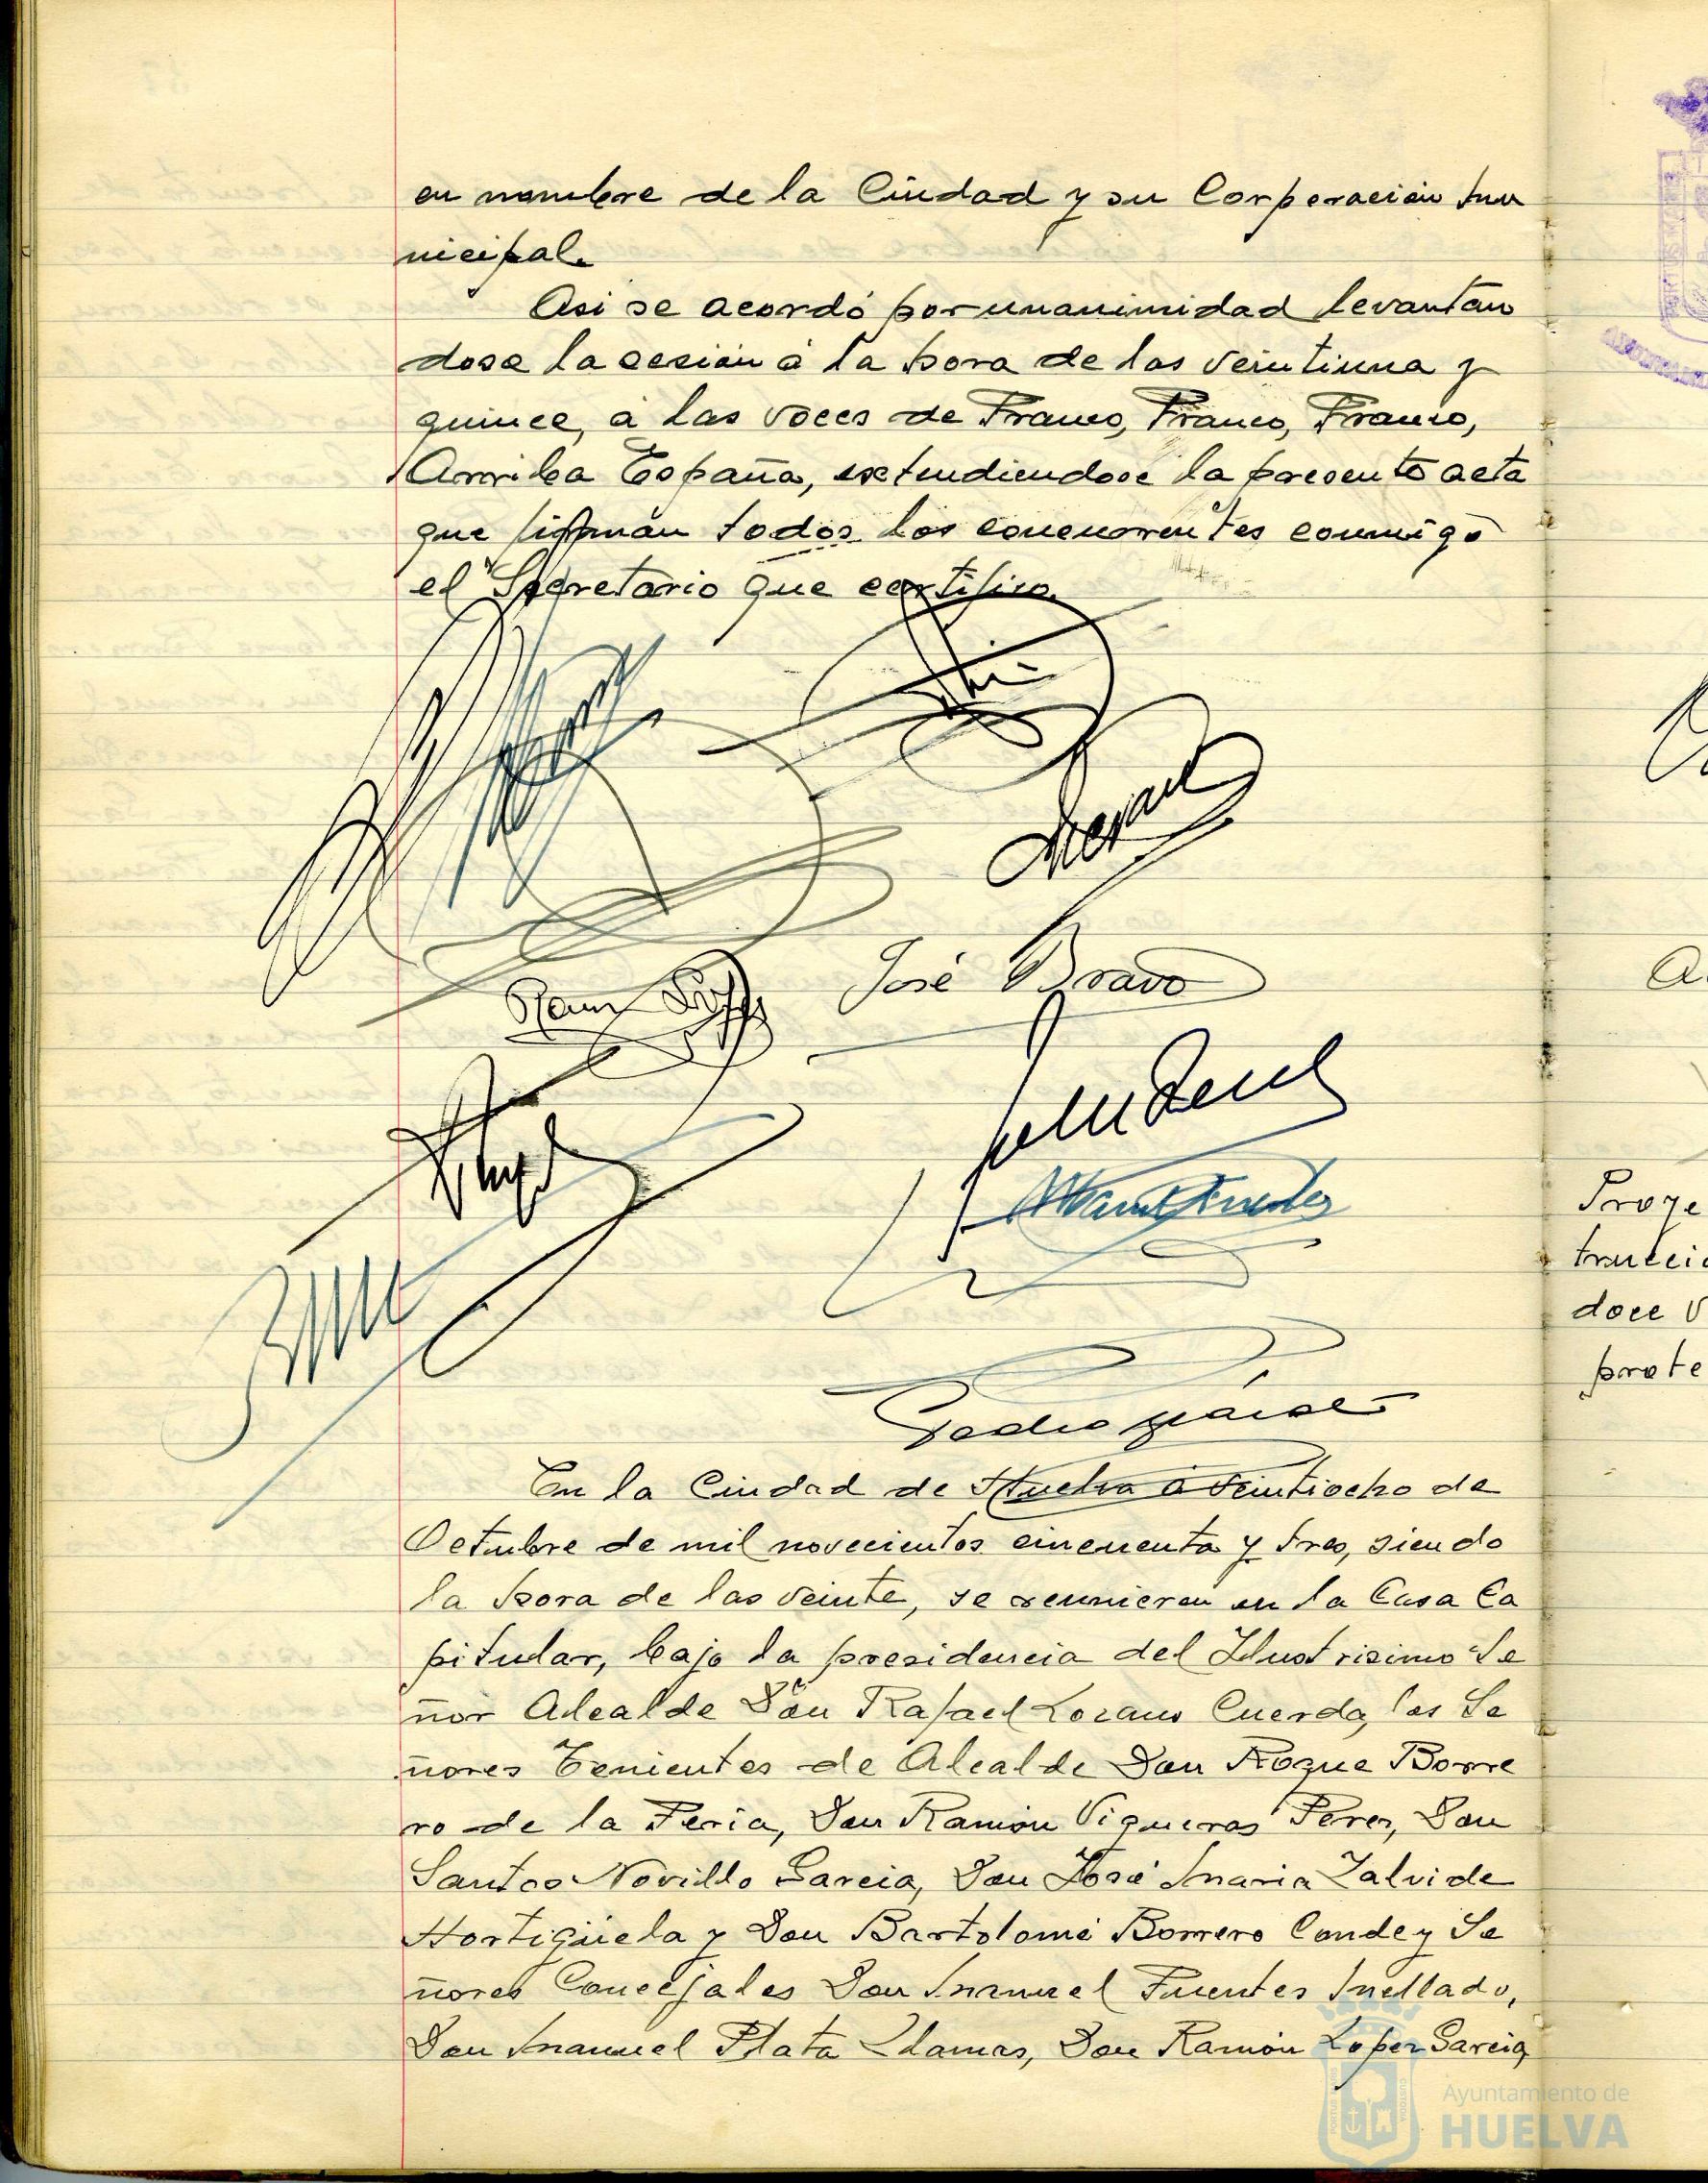 en nombre de la Ciudad y su Corporación Mu
nicipal.
Asi se acordó por unanimidad levantán
dose la sesión á la hora de las veintiuna y
quince, á las voces de Franco, Franco, Franco,
Arriba España, extendiendose la presente acta
que firman todos los concurrentes conmigo
el Secretario que certifico.
José Bravo
En la Ciudad de Huelva á veintiocho de
Octubre de mil novecientos cincuenta y tres, siendo
la hora de las veinte, se reunieron en la Casa Ca
pitular, bajo la presidencia del Ilustrisimo Se
ñor Alcalde Don Rafael Lozano Cuerda, los Se
ñores Tenientes de Alcalde Don Roque Borre
ro de la Feria, Don Ramón Vigueras Perez, Don
Santos Novillo Garcia, Don José Maria Zalvide
Hortigüela y Don Bartolomé Borrero Conde y Se
ñores Concejales Don Manuel Fuentes Mellado,
Don Manuel Plata Llamas, Don Ramón Lopez Garcia,
Proye
trucció
doce v
prote
Ayuntamiento de
HUELVA